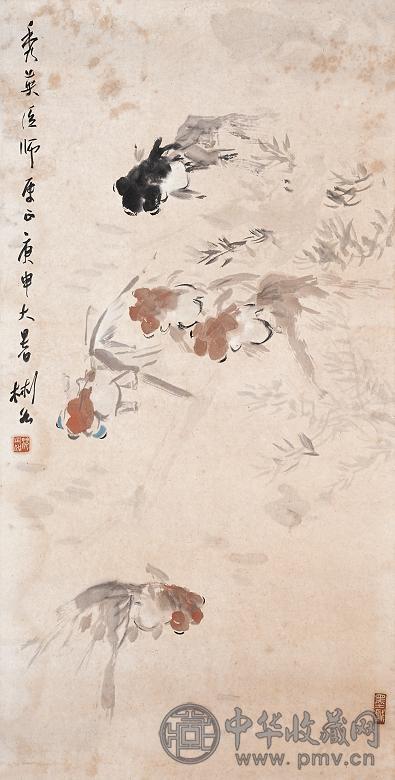 秀英医师正庚申大暑
中华收藏网
www.pmv.cn